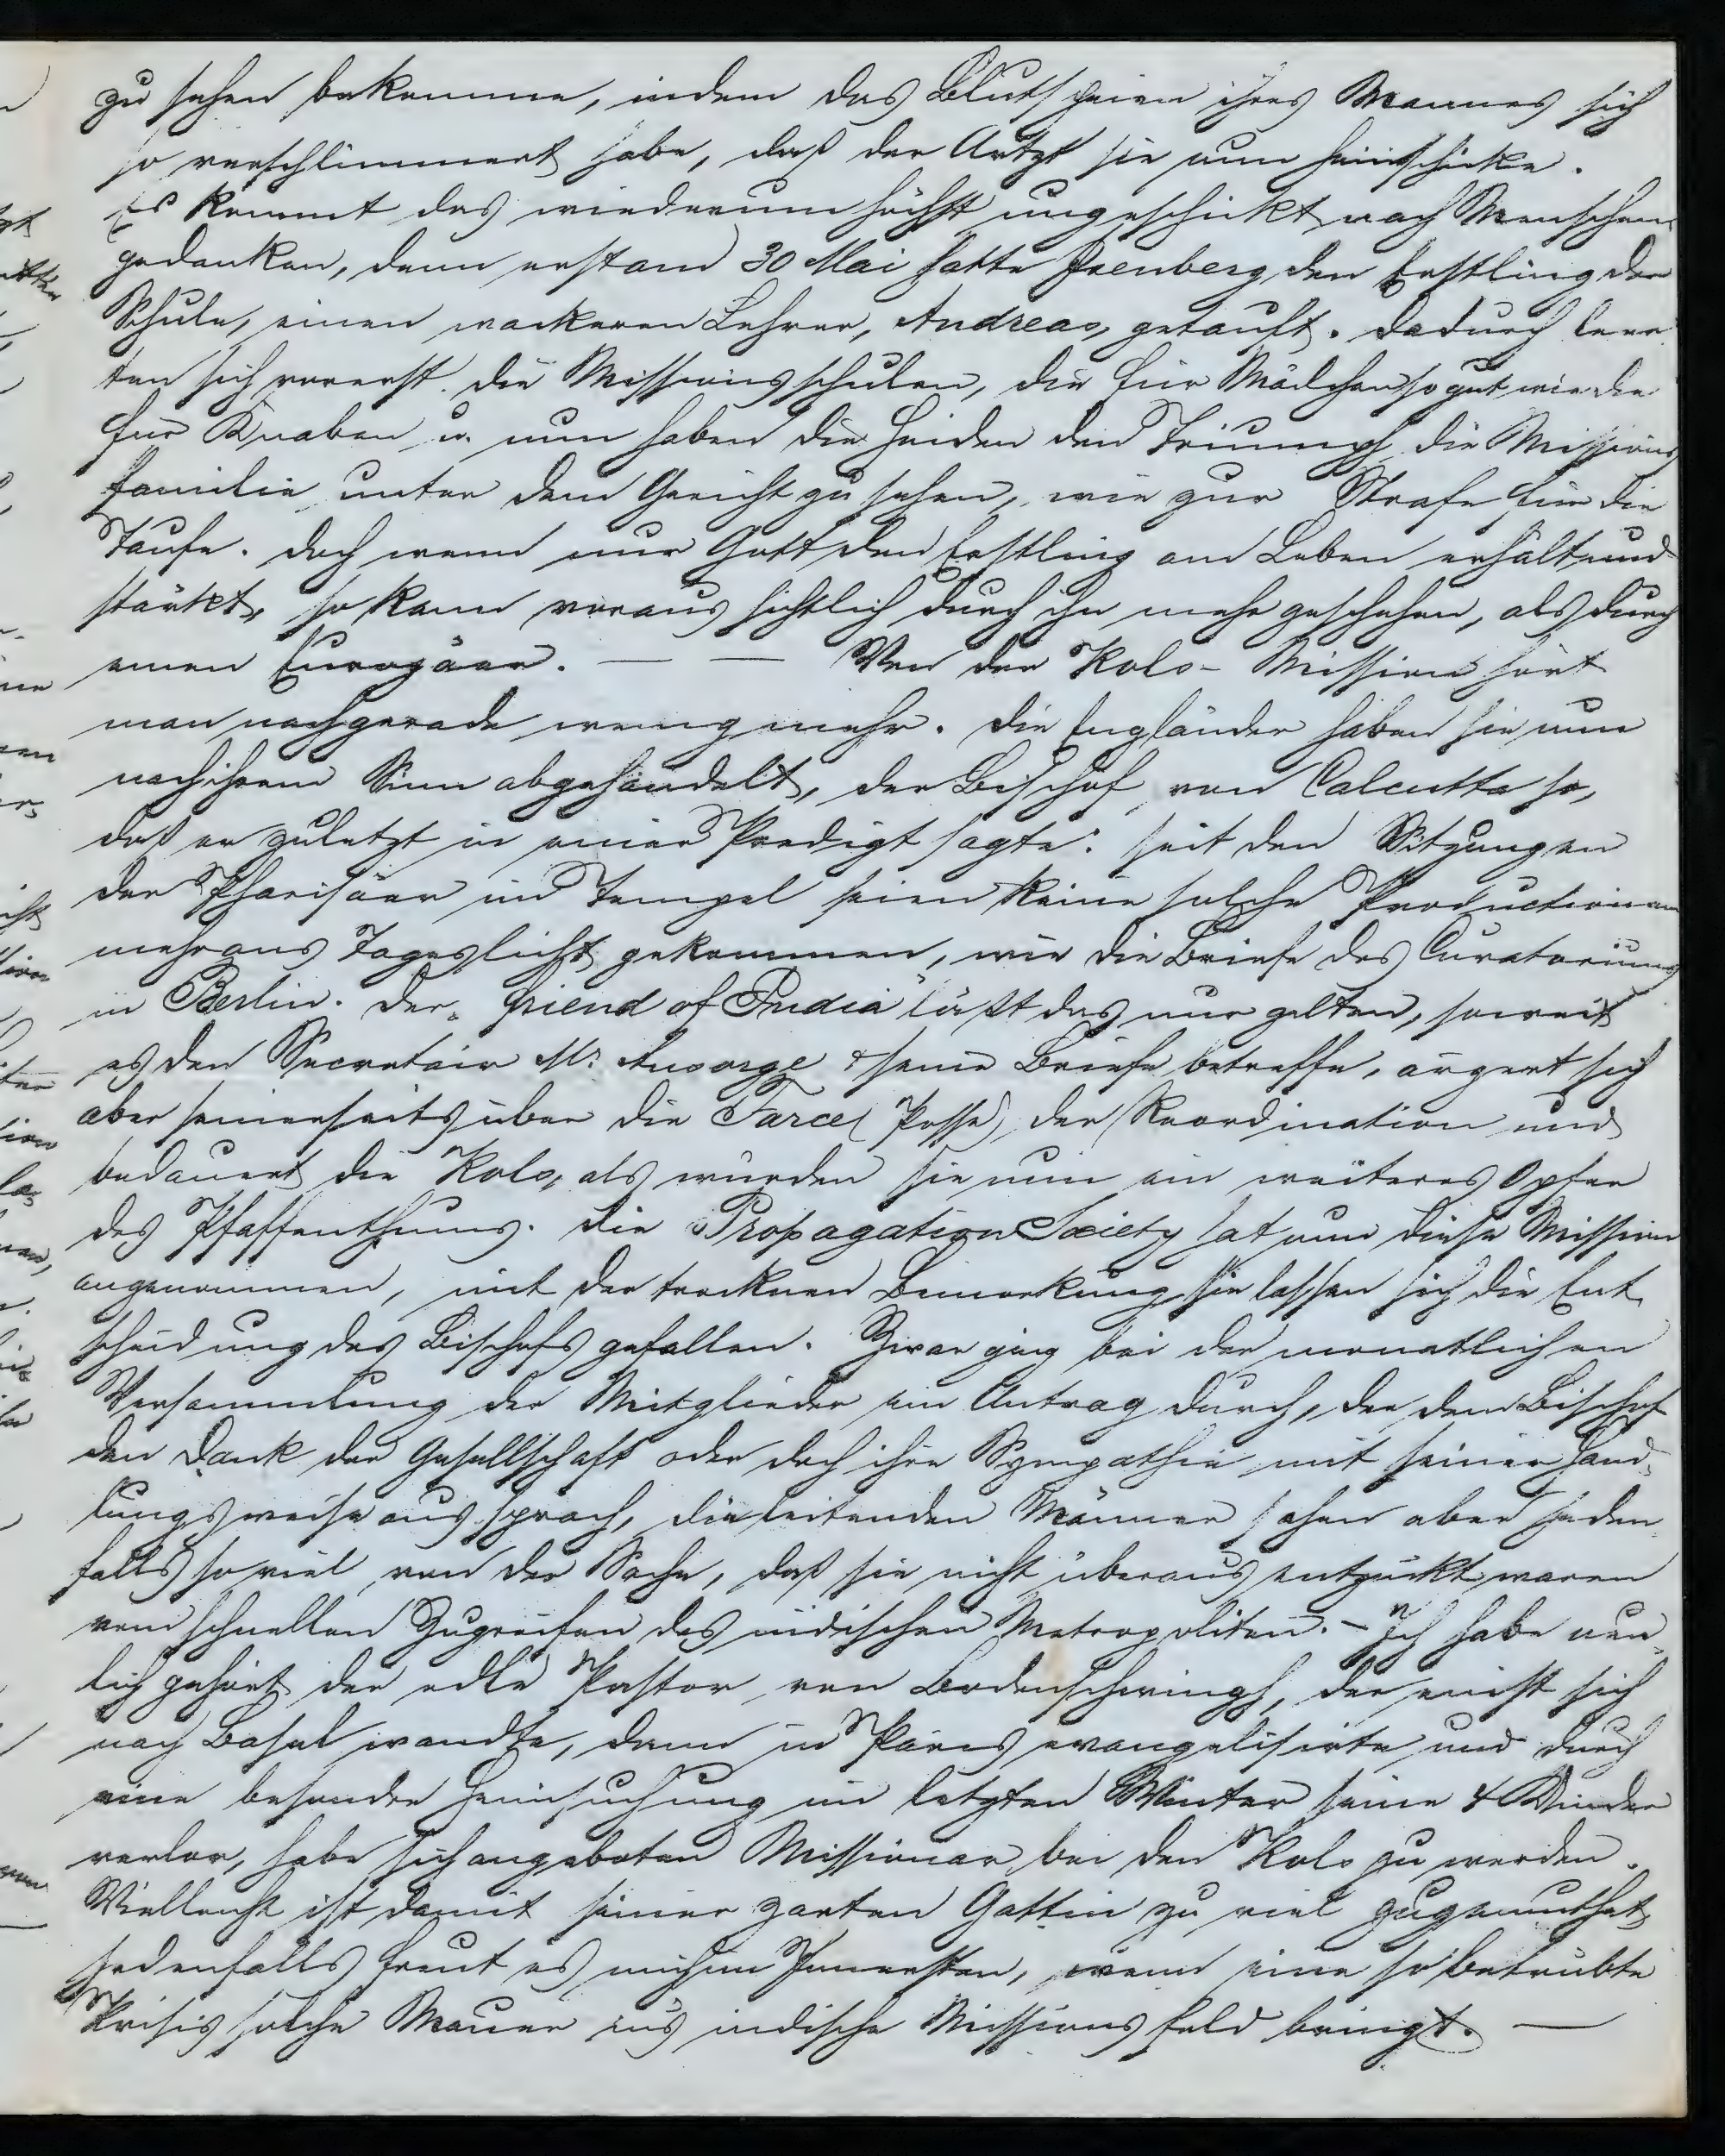 zu sehen bekomme, indem das Blutspeien ihres Mannes sich
so verschlimmert habe, daß der Artzt sie nun heimschicke.
Es kommt das wiederum höchst ungeschickt nach Menschen
gedanken, denn erst am 30 Mai hatte Isenberg den Erstling der
Schule, einen wackeren Lehrer, Andreas, getauft. Dadurch leer
ten sich vorerst die Missionsschulen, die für Mädchen so gut wie die
für Knaben u. nun haben die Heiden den Triumph die Missions
familie unter dem Gericht zu sehen, wie zur Strafe für die
Taufe. Doch wenn nur Gott den Erstling am Leben erhält und
stärkt, so kann voraussichtlich durch ihn mehr geschehen, als durch
einen Europäer. — — Von der Kols-Mission hört
man nachgerade wenig mehr. Die Engländer haben sie nun
nach ihrem Sinn abgehandelt, der Bischof von Calcutta so,
daß er zuletzt in einer Predigt sagte: seit den Sitzungen
der Pharisäer im Tempel seien keine solche Productionen
mehr ans Tageslicht gekommen, wie die Briefe des Curatoriums
in Berlin. Der „friend of India" läßt das nur gelten, soweit
es den Secretair Mr. Ansorge & seine Briefe betreffe, ärgert sich
aber seinerseits über die Farce (Posse) der Reordination und
bedauert die Kols, als würden sie nun ein weiteres Opfer
des Pfaffenthums. Die Propagation Society hat nun diese Mission
angenommen, mit der trocknen Bemerkung, sie lassen sich die Ent
scheidung des Bischofs gefallen. Zwar ging bei der monatlichen
Versammlung der Mitglieder ein Antrag durch, der dem Bischof
den Dank der Gesellschaft oder doch ihre Sympathie mit seiner Hand-
lungsweise aussprach, die leitenden Männer sahen aber jeden
falls so viel von der Sache, daß sie nicht überaus entzückt waren
vom schnellen Zugreifen des indischen Metropoliten. – Ich habe neu-
lich gehört der edle Pastor von Bodenschwingh, der einst sich
nach Basel wandte, dann in Paris evangelisirte und durch
eine besondre Heimsuchung im letzten Winter seine 4 Kinder
verlor, habe sich angeboten Missionar bei den Kols zu werden.
Vielleicht ist damit seiner zarten Gattin zu viel zugemuthet
jedenfalls freut es mich im Innersten, wenn eine so betrübte
Krisis solche Männer ins indische Missionsfeld bringt. —